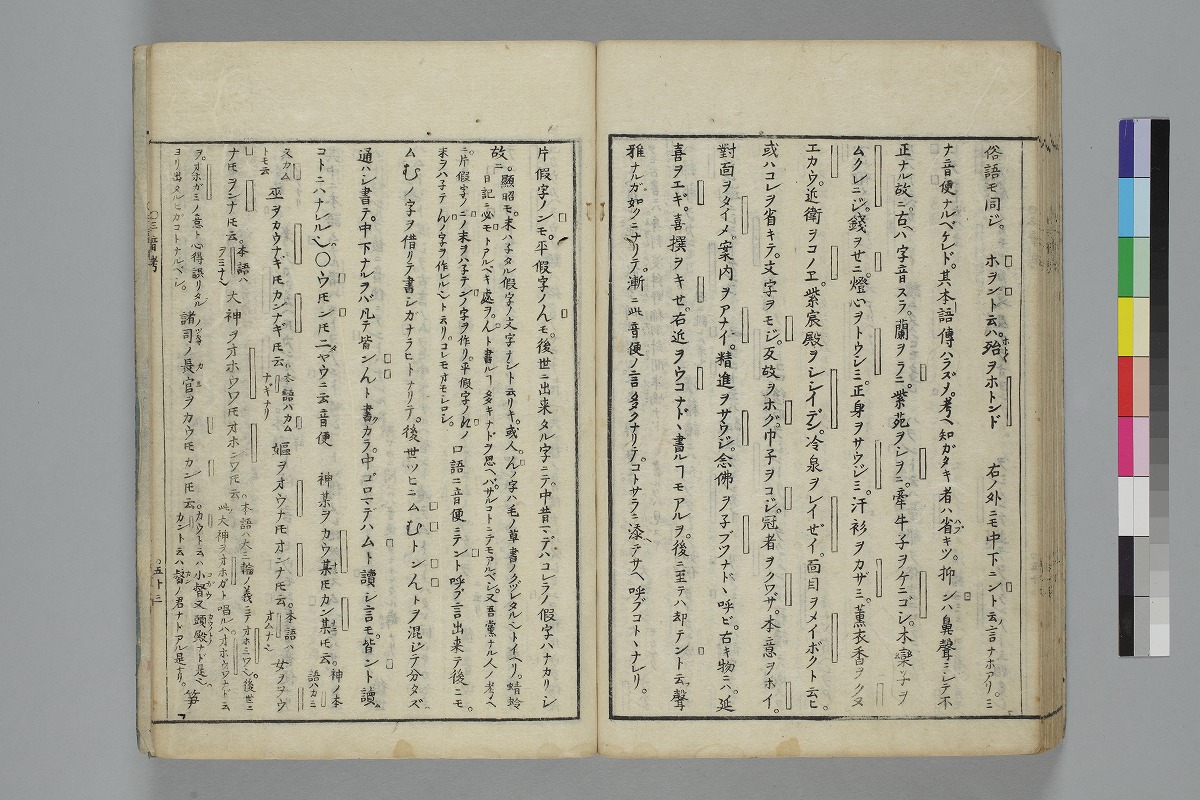 俗語モ同ジ。　ホヲント云ハ。殆ヲホトンド　　右ノ外ニモ中下ニント云フ言ナホアリ。ミ
ナ音便ナルベケレド。其本語傳ハラズメ。考ヘ知ガタキ者ハ省キツ。抑ンハ鼻聲ニシテ不
正ナル故ニ。古ヘハ字音スラ。蘭ヲラニ。紫苑ヲシヲニ。牽牛子ヲケニゴシ。木欒子ヲ
ムクレニジ。錢ヲせニ。燈心ヲトウシミ。正身ヲサウジミ。汗衫ヲカザミ。薫衣香ヲクヌ
エカウ。近衛ヲコノヱ。紫宸殿ヲシシイデ。冷泉ヲレイゼイ。面目ヲメイボクト云ヒ
或ハコレヲ省キテ。文字ヲモジ。反故ヲホグ。巾子ヲコジ。冠者ヲクワザ。本意ヲホイ。
對面ヲタイメ。案内ヲアナイ。精進ヲサウジ。念佛ヲ子ブツナドヽ呼ビ。古キ物ニハ。延
喜ヲエギ。喜撰ヲキせ。右近ヲウコナドヽ書ルヿモアルヲ。後ニ至テハ却テント云フ聲
雅ナルガ如クニナリテ。漸ニ此音便ノ言多クナリテ。コトサラニ添テサヘ呼ブコトヽナレリ。
片假字ノンモ。平假字ノんモ。後世ニ出来タル字ニテ。中昔マデハ。コレラノ假字ハナカリシ
故ニ。
顯昭モ。末ハ子タル假字ノ文字ナシト云リキ。或人。ん字ハ毛ノ草書ノクヅレタル也トイヘリ。蜻蛉
日記ニ必モトアルベキ處ヲ。んト書ルヿ多キナドヲ思ヘバ。サルコトニテモアルベシ。又吾黨ナル人ノ考ヘ
ニ。片假字ノニノ末ヲハ子テンノ字ヲ作リ。平假字ノ
末ヲハ子テんノ字ヲ作レル也ト云リ。コレモオモシロシ。
口語ニ音便ニテント呼ブ言出来テ後ニモ。
ムむノ字ヲ借リテ書シガナラヒトナリテ。後世ツヒニムむトンんトヲ混シテ分タズ
通ハシ書テ。中下ナルヲバ凡テ皆ンんト書クカラ。中ゴロマデハムト讀シ言モ。皆ント讀
コトニハナレル也〇ウ㔫モン㔫モニヤウニ云音便　神某ヲカウ某㔫モカン某㔫モ云
神ノ本
語ハカミ
又カム
トモ云
巫ヲカウナギ㔫モカンナギ㔫モ云
本語ハカム
ナギナリ
嫗ヲオウナ㔫モオンナ㔫モ云。
本語ハ
オムナ也
女ヲヲウ
ナ㔫モヲンナ㔫モ云
本語ハ
ヲミナ也
大神ヲオホウワ㔫モオホンワ㔫モ云
本語ハ大三輪ノ義ニテオホミワ也。後世ニ
此大神ヲオホガト唱ルハ。オホウワナド云
ヲ。オホガミノ意ト心得誤リタル
ヨリ出タルヒガコトナルベシ。
諸司ノ長官ヲカウ㔫モカン㔫モ云
カウト云ハ小督又頭殿ナド是也。
カント云ハ督ノ君ナドアル是ナリ。
音考
五十三